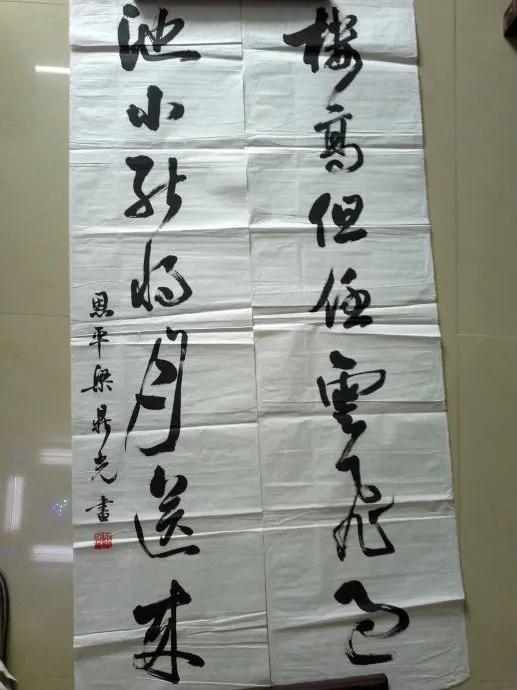 楼高但任雲飛過
池小能将月送来
恩平梁鼎光書